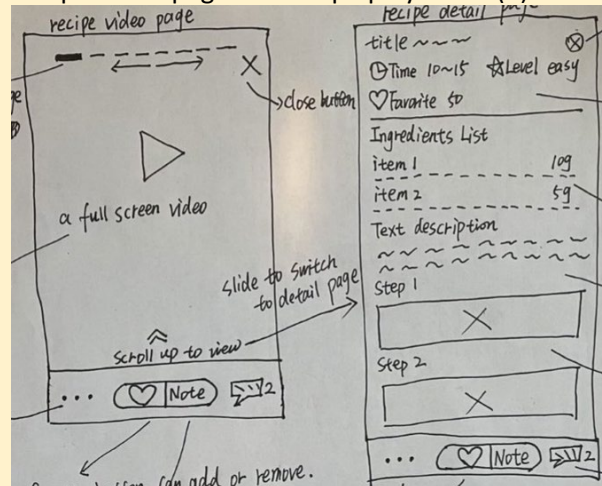 recipe video page
close button
a full screen video
slide to switch
to detail page
scroll up to view
... Note 2
can add or remove.
recipe detail page
title
Time 10~15 Level easy
Favorite 50
Ingredients List
item 1 10g
item 2 5g
Text description
Step 1
Step 2
... Note 2